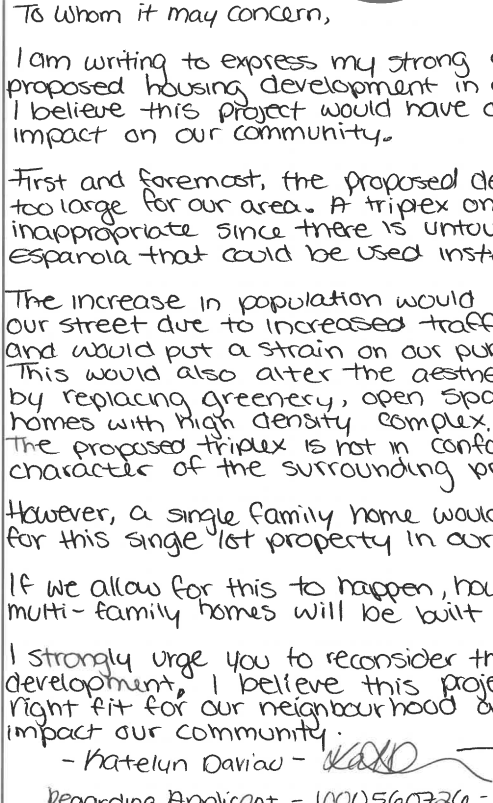 To whom it may concern,
I am writing to express my strong
proposed housing development in
I believe this project would have
impact on our community.
First and foremost, the proposed de
too large for our area. A triplex on
inappropriate since there is untou
espanola that could be used inst
The increase in population would
our street due to increased traff
and would put a strain on our
This would also alter the aesthe
by replacing greenery, open spa
homes with high density complex.
The proposed triplex is not in confo
character of the surrounding pr
However, a single family home woul
for this singe lot property in our
If we allow for this to happen, ho
multi-family homes will be built
I strongly urge you to reconsider th
development. I believe this proje
right fit for our neighbourhood
impact our community.
- Katelyn Daviau -
Regarding Applicant -